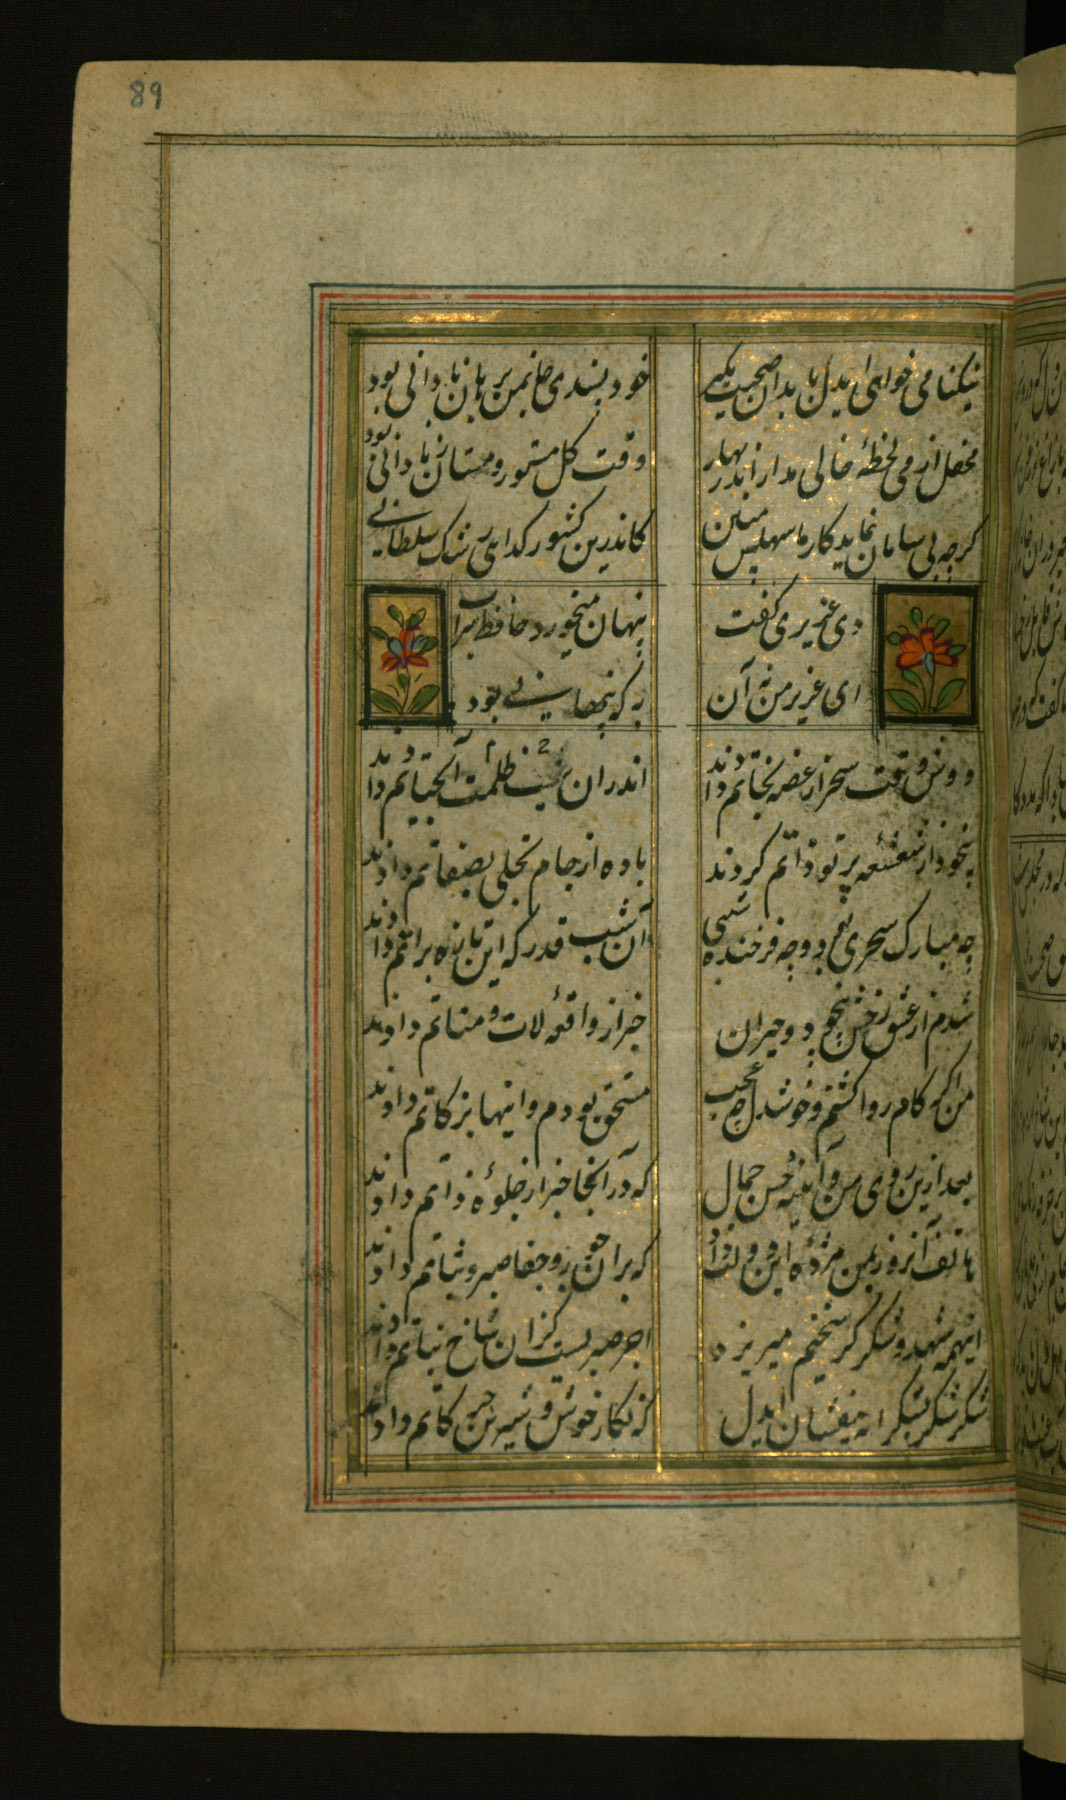 89
نیکنامی خواهی ایدل با بدان صحبت مکن
خود پسندی جان من برهان نادانی بود
محفل از می لحظهٔ خالی مدار اندر بهار
وقت گل مستور و مستان ز نادانی بود
گرچه بی سامان نماید کار ما سهلش مبین
کاندرین کشور گدایی رشک سلطانی
دی عزیزی گفت
پنهان میخورد حافظ شراب
ای عزیز من نه آن
به که پنهانی بود
دوش وقت سحر از غصه نجاتم دادند
2
اندران نیم شب ظلمت آبحیاتم دادند
بیخود از شعشعه پرتو ذاتم کردند
باده از جام تجلی بصفاتم دادند
چه مبارک سحری بود و چه فرخنده شبی
آن شب قدر که این تازه براتم دادند
شدم از عشق رخش بیخود و حیران
خبر از واقعه لات و مناتم دادند
من اگر کام روا گشتم و خوشدل چه عجب
مستحق بودم و اینها بزکاتم دادند
بعد ازین روی من و آینه حسن جمال
که در آنجا خبر از جلوهٔ ذاتم دادند
هاتف آنروز بمن مژدهٔ این دولت داد
که بران جور و جفا صبر و ثباتم دادند
اینهمه شهد و شکر کز سخنم میریزد
اجر صبریست کزان شاخ نباتم دادند
شکر شکر بشکرانه بیفشان ایدل
که نگار خوش و شیرین حرکاتم دادند